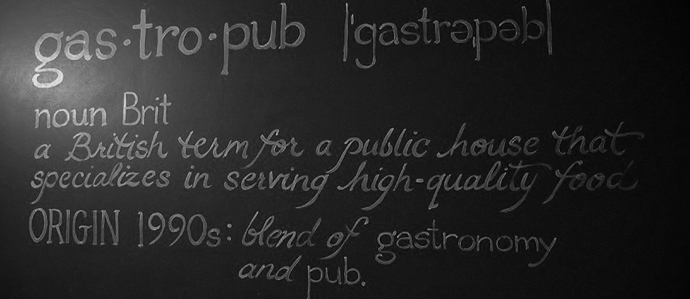 gas·tro·pub |'gastrə,pəb|
noun Brit
a British term for a public house that
specializes in serving high-quality food
ORIGIN 1990s: blend of gastronomy
and pub.